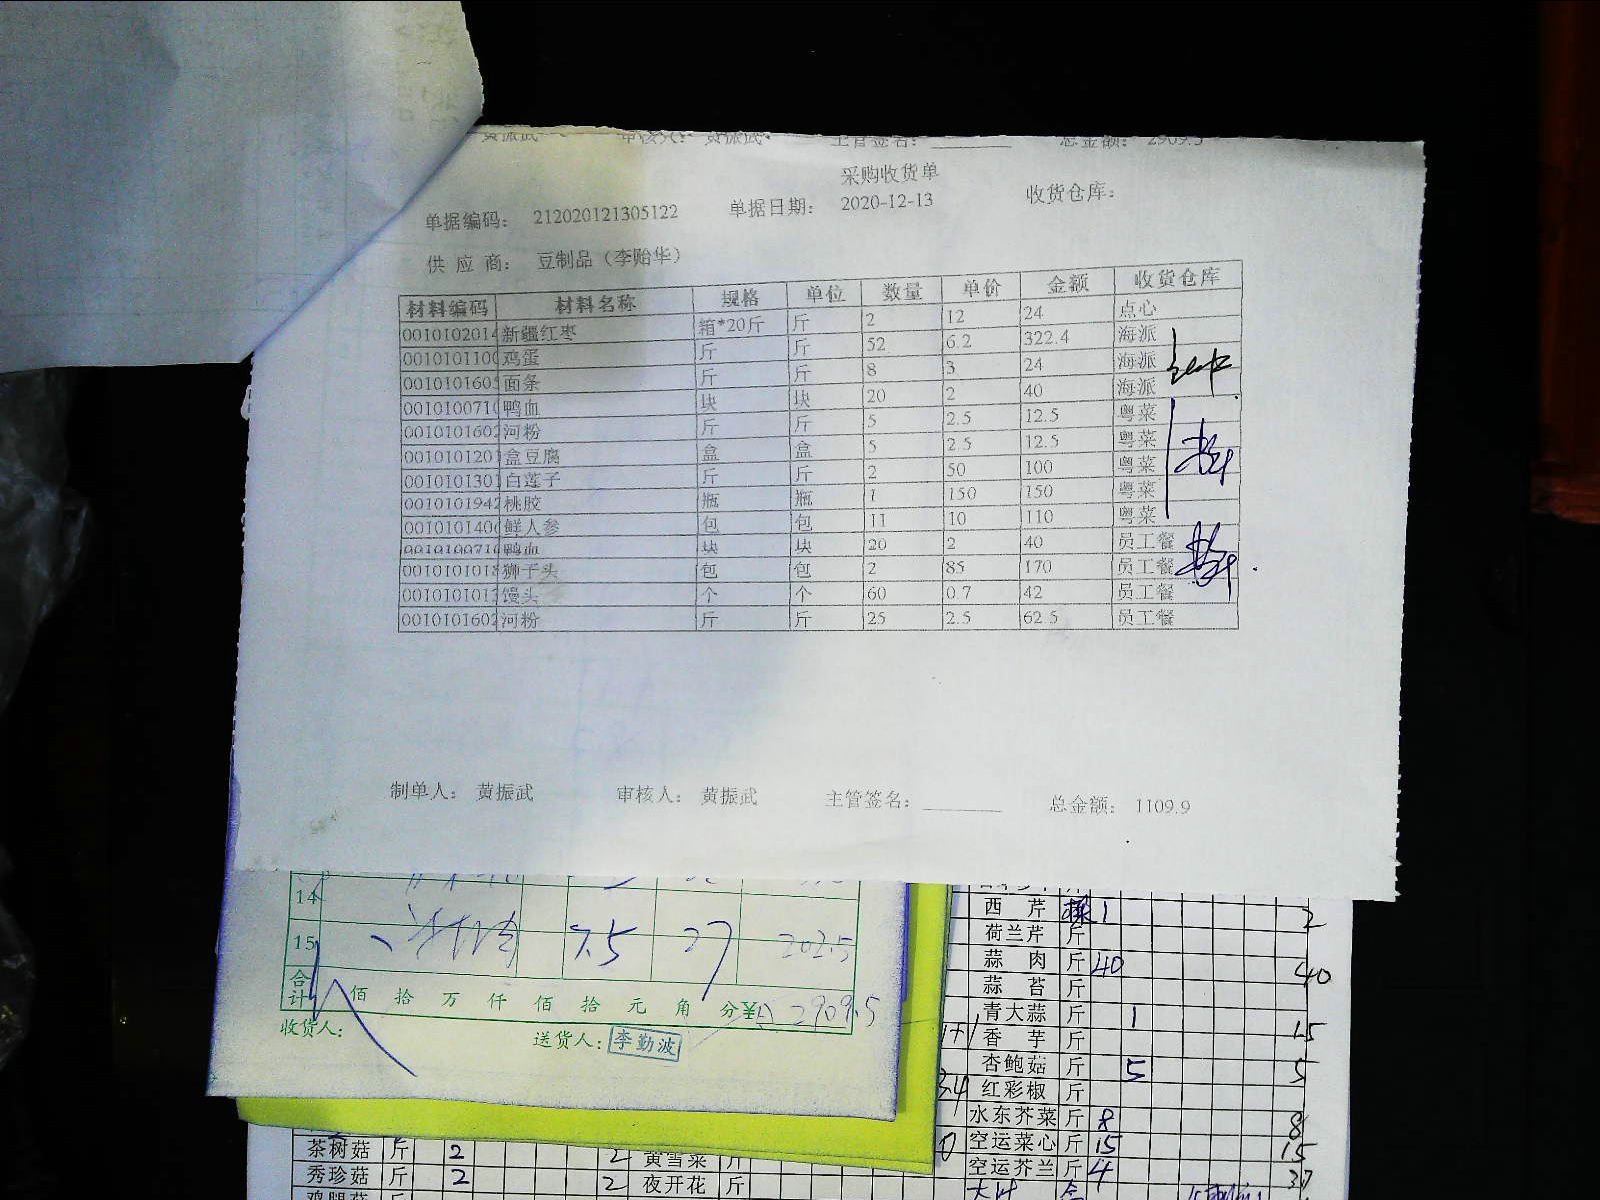 黄振武 审核人: 黄振武 主管签名: 总金额: 2909.5
采购收货单
单据编码: 212020121305122 单据日期: 2020-12-13 收货仓库:
供应商: 豆制品（李贻华）
材料编码 材料名称 规格 单位 数量 单价 金额 收货仓库
0010102014 新疆红枣 箱*20斤 斤 2 12 24 点心
0010101100 鸡蛋 斤 斤 52 6.2 322.4 海派
001010160 面条 斤 斤 8 3 24 海派
001010071 鸭血 块 块 20 2 40 海派
0010101602 河粉 斤 斤 5 2.5 12.5 粤菜
001010120 盒豆腐 盒 盒 5 2.5 12.5 粤菜
001010130 白莲子 斤 斤 2 50 100 粤菜
0010101942 桃胶 瓶 瓶 1 150 150 粤菜
001010140 鲜人参 包 包 11 10 110 粤菜
001010071 鸭血 块 块 20 2 40 员工餐
001010101 狮子头 包 包 2 85 170 员工餐
001010101 馒头 个 个 60 0.7 42 员工餐
0010101602 河粉 斤 斤 25 2.5 62.5 员工餐
制单人: 黄振武 审核人: 黄振武 主管签名: 总金额: 1109.9
14
15 7.5 27 202.5
合计 佰 拾 万 仟 佰 拾 元 角 分¥ 2909.5
收货人: 送货人: 李勤波
西芹 1 2
荷兰芹 斤
蒜肉 斤 40 40
蒜苔 斤
青大蒜 斤 1
香芋 斤 15
杏鲍菇 斤 5 5
红彩椒 斤
水东芥菜 斤 8 8
空运菜心 斤 15 15
空运芥兰 斤 4 37
茶树菇 斤 2 2 黄雪菜 斤
秀珍菇 斤 2 2 夜开花 斤